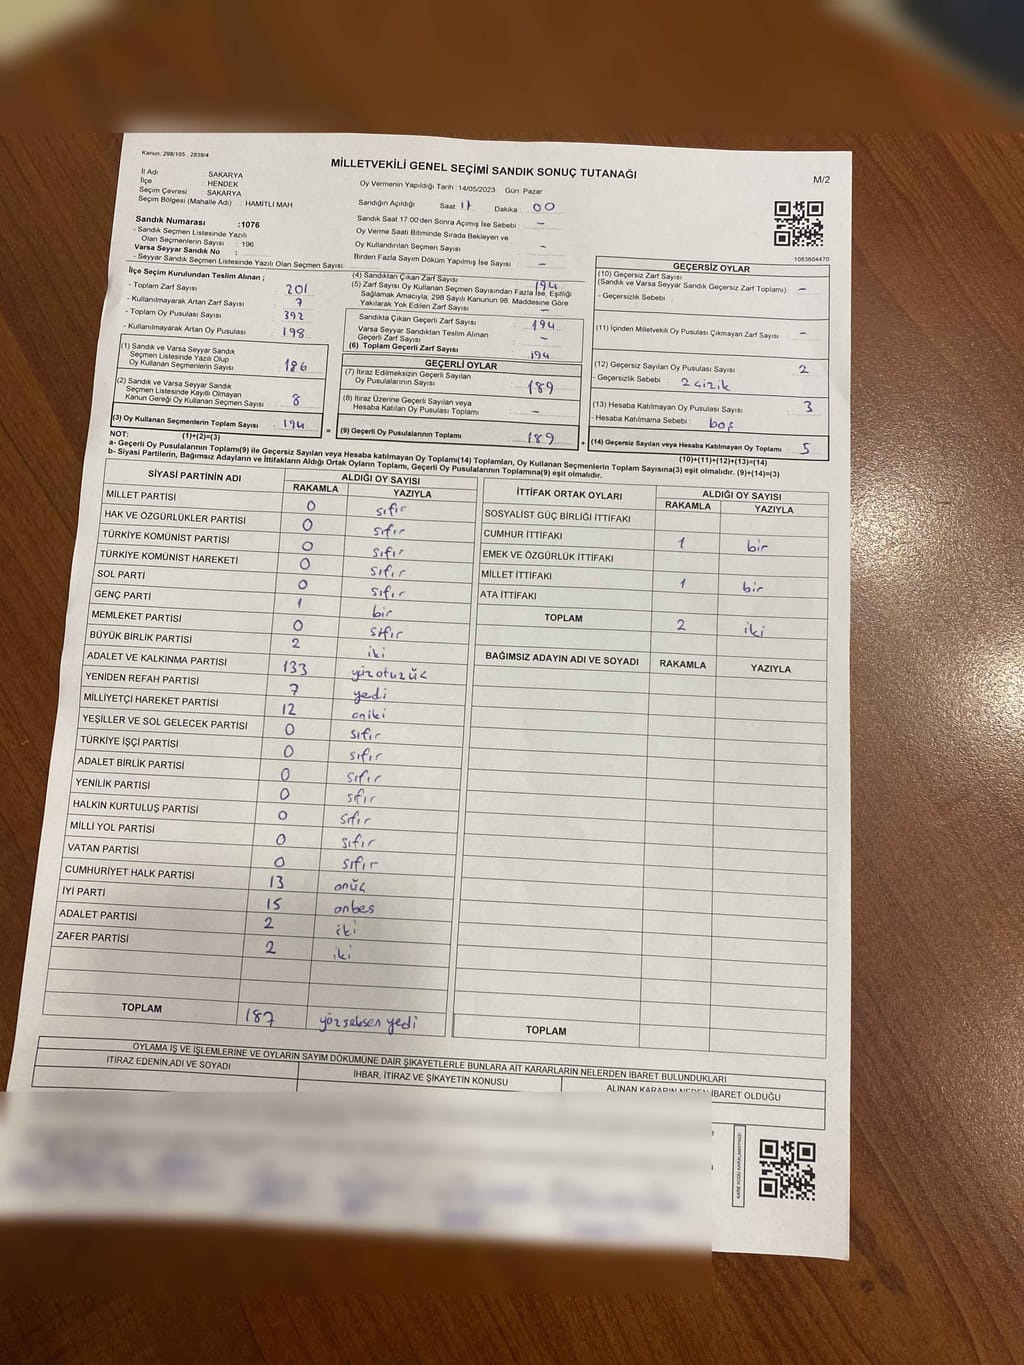 Kanun: 298/105 , 2839/4
MİLLETVEKİLİ GENEL SEÇİMİ SANDIK SONUÇ TUTANAĞI
M/2
İl Adı : SAKARYA
İlçe : HENDEK
Seçim Çevresi : SAKARYA
Seçim Bölgesi (Mahalle Adı) : HAMİTLİ MAH
Oy Vermenin Yapıldığı Tarih : 14/05/2023 Gün: Pazar
Sandığın Açıldığı Saat: 17 Dakika : 00
Sandık Saat 17:00'den Sonra Açımış İse Sebebi : -
Oy Verme Saati Bitiminde Sırada Bekleyen ve
Oy Kullandırılan Seçmen Sayısı -
Birden Fazla Sayım Döküm Yapılmış İse Sayısı -
Sandık Numarası :1076
- Sandık Seçmen Listesinde Yazılı
Olan Seçmenlerin Sayısı : 196
Varsa Seyyar Sandık No :
- Seyyar Sandık Seçmen Listesinde Yazılı Olan Seçmen Sayısı:
1083604470
İlçe Seçim Kurulundan Teslim Alınan ;
- Toplam Zarf Sayısı 201
- Kullanılmayarak Artan Zarf Sayısı 7
- Toplam Oy Pusulası Sayısı 392
- Kullanılmayarak Artan Oy Pusulası 198
(1) Sandık ve Varsa Seyyar Sandık
Seçmen Listesinde Yazılı Olup
Oy Kullanan Seçmenlerin Sayısı 186
(2) Sandık ve Varsa Seyyar Sandık
Seçmen Listesinde Kayıtlı Olmayan
Kanun Gereği Oy Kullanan Seçmen Sayısı 8
(3) Oy Kullanan Seçmenlerin Toplam Sayısı 194
(1)+(2)=(3)
(4) Sandıktan Çıkan Zarf Sayısı 194
(5) Zarf Sayısı Oy Kullanan Seçmen Sayısından Fazla İse, Eşitliği
Sağlamak Amacıyla; 298 Sayılı Kanunun 98. Maddesine Göre
Yakılarak Yok Edilen Zarf Sayısı -
Sandıkta Çıkan Geçerli Zarf Sayısı 194
Varsa Seyyar Sandıktan Teslim Alınan
Geçerli Zarf Sayısı -
(6) Toplam Geçerli Zarf Sayısı 194
GEÇERLİ OYLAR
(7) İtiraz Edilmeksizin Geçerli Sayılan
Oy Pusulalarının Sayısı 189
(8) İtiraz Üzerine Geçerli Sayılan veya
Hesaba Katılan Oy Pusulası Toplamı -
= (9) Geçerli Oy Pusulalarının Toplamı 189 +
GEÇERSİZ OYLAR
(10) Geçersiz Zarf Sayısı
(Sandık ve Varsa Seyyar Sandık Geçersiz Zarf Toplamı) -
- Geçersizlik Sebebi :
(11) İçinden Milletvekili Oy Pusulası Çıkmayan Zarf Sayısı -
(12) Geçersiz Sayılan Oy Pusulası Sayısı 2
- Geçersizlik Sebebi : 2 çizik
(13) Hesaba Katılmayan Oy Pusulası Sayısı 3
- Hesaba Katılmama Sebebi : boş
(14) Geçersiz Sayılan veya Hesaba Katılmayan Oy Toplamı 5
(10)+(11)+(12)+(13)=(14)
NOT:
a- Geçerli Oy Pusulaları Toplamı(9) ile Geçersiz Sayılan veya Hesaba katılmayan Oy Toplamı(14) Toplamları, Oy Kullanan Seçmenlerin Toplam Sayısına(3) eşit olmalıdır. (9)+(14)=(3)
b- Siyasi Partilerin, Bağımsız Adayların ve İttifakların Aldığı Ortak Oyların Toplamı, Geçerli Oy Pusulalarının Toplamına(9) eşit olmalıdır.
SİYASİ PARTİNİN ADI ALDIĞI OY SAYISI
RAKAMLA YAZIYLA
MİLLET PARTİSİ 0 sıfır
HAK VE ÖZGÜRLÜKLER PARTİSİ 0 sıfır
TÜRKİYE KOMÜNİST PARTİSİ 0 sıfır
TÜRKİYE KOMÜNİST HAREKETİ 0 sıfır
SOL PARTİ 0 sıfır
GENÇ PARTİ 1 bir
MEMLEKET PARTİSİ 0 sıfır
BÜYÜK BİRLİK PARTİSİ 2 iki
ADALET VE KALKINMA PARTİSİ 133 yüzotuzüç
YENİDEN REFAH PARTİSİ 7 yedi
MİLLİYETÇİ HAREKET PARTİSİ 12 oniki
YEŞİLLER VE SOL GELECEK PARTİSİ 0 sıfır
TÜRKİYE İŞÇİ PARTİSİ 0 sıfır
ADALET BİRLİK PARTİSİ 0 sıfır
YENİLİK PARTİSİ 0 sfır
HALKIN KURTULUŞ PARTİSİ 0 sıfır
MİLLİ YOL PARTİSİ 0 sıfır
VATAN PARTİSİ 0 sıfır
CUMHURİYET HALK PARTİSİ 13 onüç
İYİ PARTİ 15 onbes
ADALET PARTİSİ 2 iki
ZAFER PARTİSİ 2 iki
TOPLAM 187 yüzseksen yedi
İTTİFAK ORTAK OYLARI ALDIĞI OY SAYISI
RAKAMLA YAZIYLA
SOSYALİST GÜÇ BİRLİĞİ İTTİFAKI
CUMHUR İTTİFAKI 1 bir
EMEK VE ÖZGÜRLÜK İTTİFAKI
MİLLET İTTİFAKI 1 bir
ATA İTTİFAKI
TOPLAM 2 iki
BAĞIMSIZ ADAYIN ADI VE SOYADI RAKAMLA YAZIYLA
TOPLAM
OYLAMA İŞ VE İŞLEMLERİNE VE OYLARIN SAYIM DÖKÜMÜNE DAİR ŞİKAYETLERLE BUNLARA AİT KARARLARIN NELERDEN İBARET BULUNDUKLARI
İTİRAZ EDENİN,ADI VE SOYADI
İHBAR, İTİRAZ VE ŞİKAYETİN KONUSU
ALINAN KARARIN NEDEN İBARET OLDUĞU